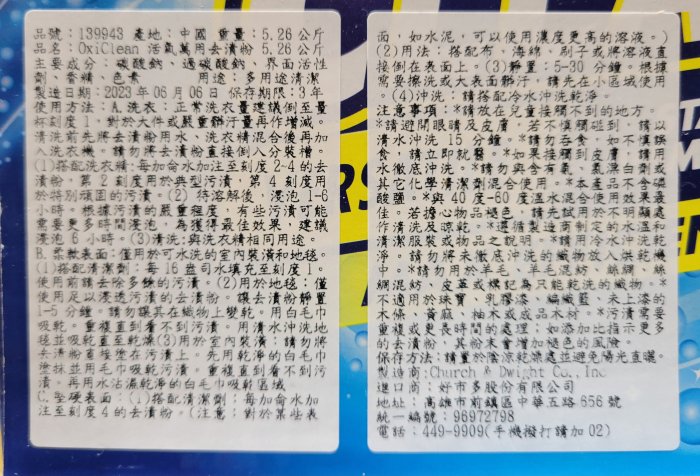 品號：139943 產地：中國 重量：5.26公斤
品名：OxiClean 活氧萬用去漬粉 5.26公斤
主要成分：碳酸鈉、過碳酸鈉、界面活性
劑、香精、色素　　用途：多用途清潔
製造日期：2023年06月06日 保存期限：3年
使用方法：A.洗衣：正常洗衣量建議倒至量
杯刻度1。對於大件或嚴重髒汙量再作增減。
清洗前先將去漬粉用水、洗衣精混合後再加
入洗衣機。請勿將去漬粉直接倒入分裝槽。
(1)搭配洗衣精:每加侖水加注至刻度2-4的去
漬粉，第2刻度用於典型污漬，第4刻度用
於特別頑固的污漬。(2)待溶解後，浸泡1-6
小時。根據污漬的嚴重程度，有些污漬可能
需要更多時間浸泡，為獲得最佳效果，建議
浸泡6小時。(3)清洗:與洗衣精相同用途。
B.柔軟表面：僅用於可水洗的室內裝潢和地毯。
(1)搭配清潔劑：每16盎司水填充至刻度1。
使用前請去除多餘的污漬。(2)用於地毯：僅
使用足以浸透污漬的去漬粉。讓去漬粉靜置
1-5分鐘。請勿讓其在織物上變乾。用白毛巾
吸乾。重複直到看不到污漬。用清水沖洗地
毯並吸乾直至乾燥(3)用於室內裝潢：請勿將
去漬粉直接塗在污漬上。先用乾淨的白毛巾
塗抹並用毛巾吸乾污漬。重複直到看不到污
漬。再用水沾濕乾淨的白毛巾吸乾區域
C.堅硬表面：(1)搭配清潔劑：每加侖水加
注至刻度4的去漬粉。(注意：對於某些表
面，如水泥，可以使用濃度更高的溶液。)
(2)用法：搭配布、海綿、刷子或將溶液直
接倒在表面上。(3)靜置：5-30分鐘。根據
需要擦洗或大表面髒汙，請先在小區域使用
。(4)沖洗：請搭配冷水沖洗乾淨。
注意事項：*請放在兒童接觸不到的地方。
*請避開眼睛及皮膚，若不慎觸碰到，請以
清水沖洗15分鐘。*請勿吞食，如不慎誤
食，請立即就醫。*如果接觸到皮膚，請用
水徹底沖洗。*請勿與含有氨、氯漂白劑或
其它化學清潔劑混合使用。*本產品不含磷
酸鹽。*與40度-60度溫水混合使用效果最
佳。若擔心物品褪色，請先試用於不明顯處
作清洗及晾乾。*遵循製造商制定的水溫和
清潔服裝或物品之說明。*請用冷水沖洗乾
淨。請勿將未徹底沖洗的織物放入烘乾機
中。*請勿用於羊毛、羊毛混紡、絲綢、絲
綢混紡、皮革或標記為只能乾洗的織物。*
不適用於珠寶、乳膠漆、編織籃、未上漆的
木條、黃麻、柚木或成品木材。*污漬需要
重複或更長時間的處理；如添加比指示更多
的去漬粉，其粉末會增加褪色的風險。
保存方法:請置於陰涼乾燥處並避免陽光直曬。
製造商:Church & Dwight Co., Inc
進口商：好市多股份有限公司
地址：高雄市前鎮區中華五路656號
統一編號：96972798
電話：449-9909(手機撥打請加02)